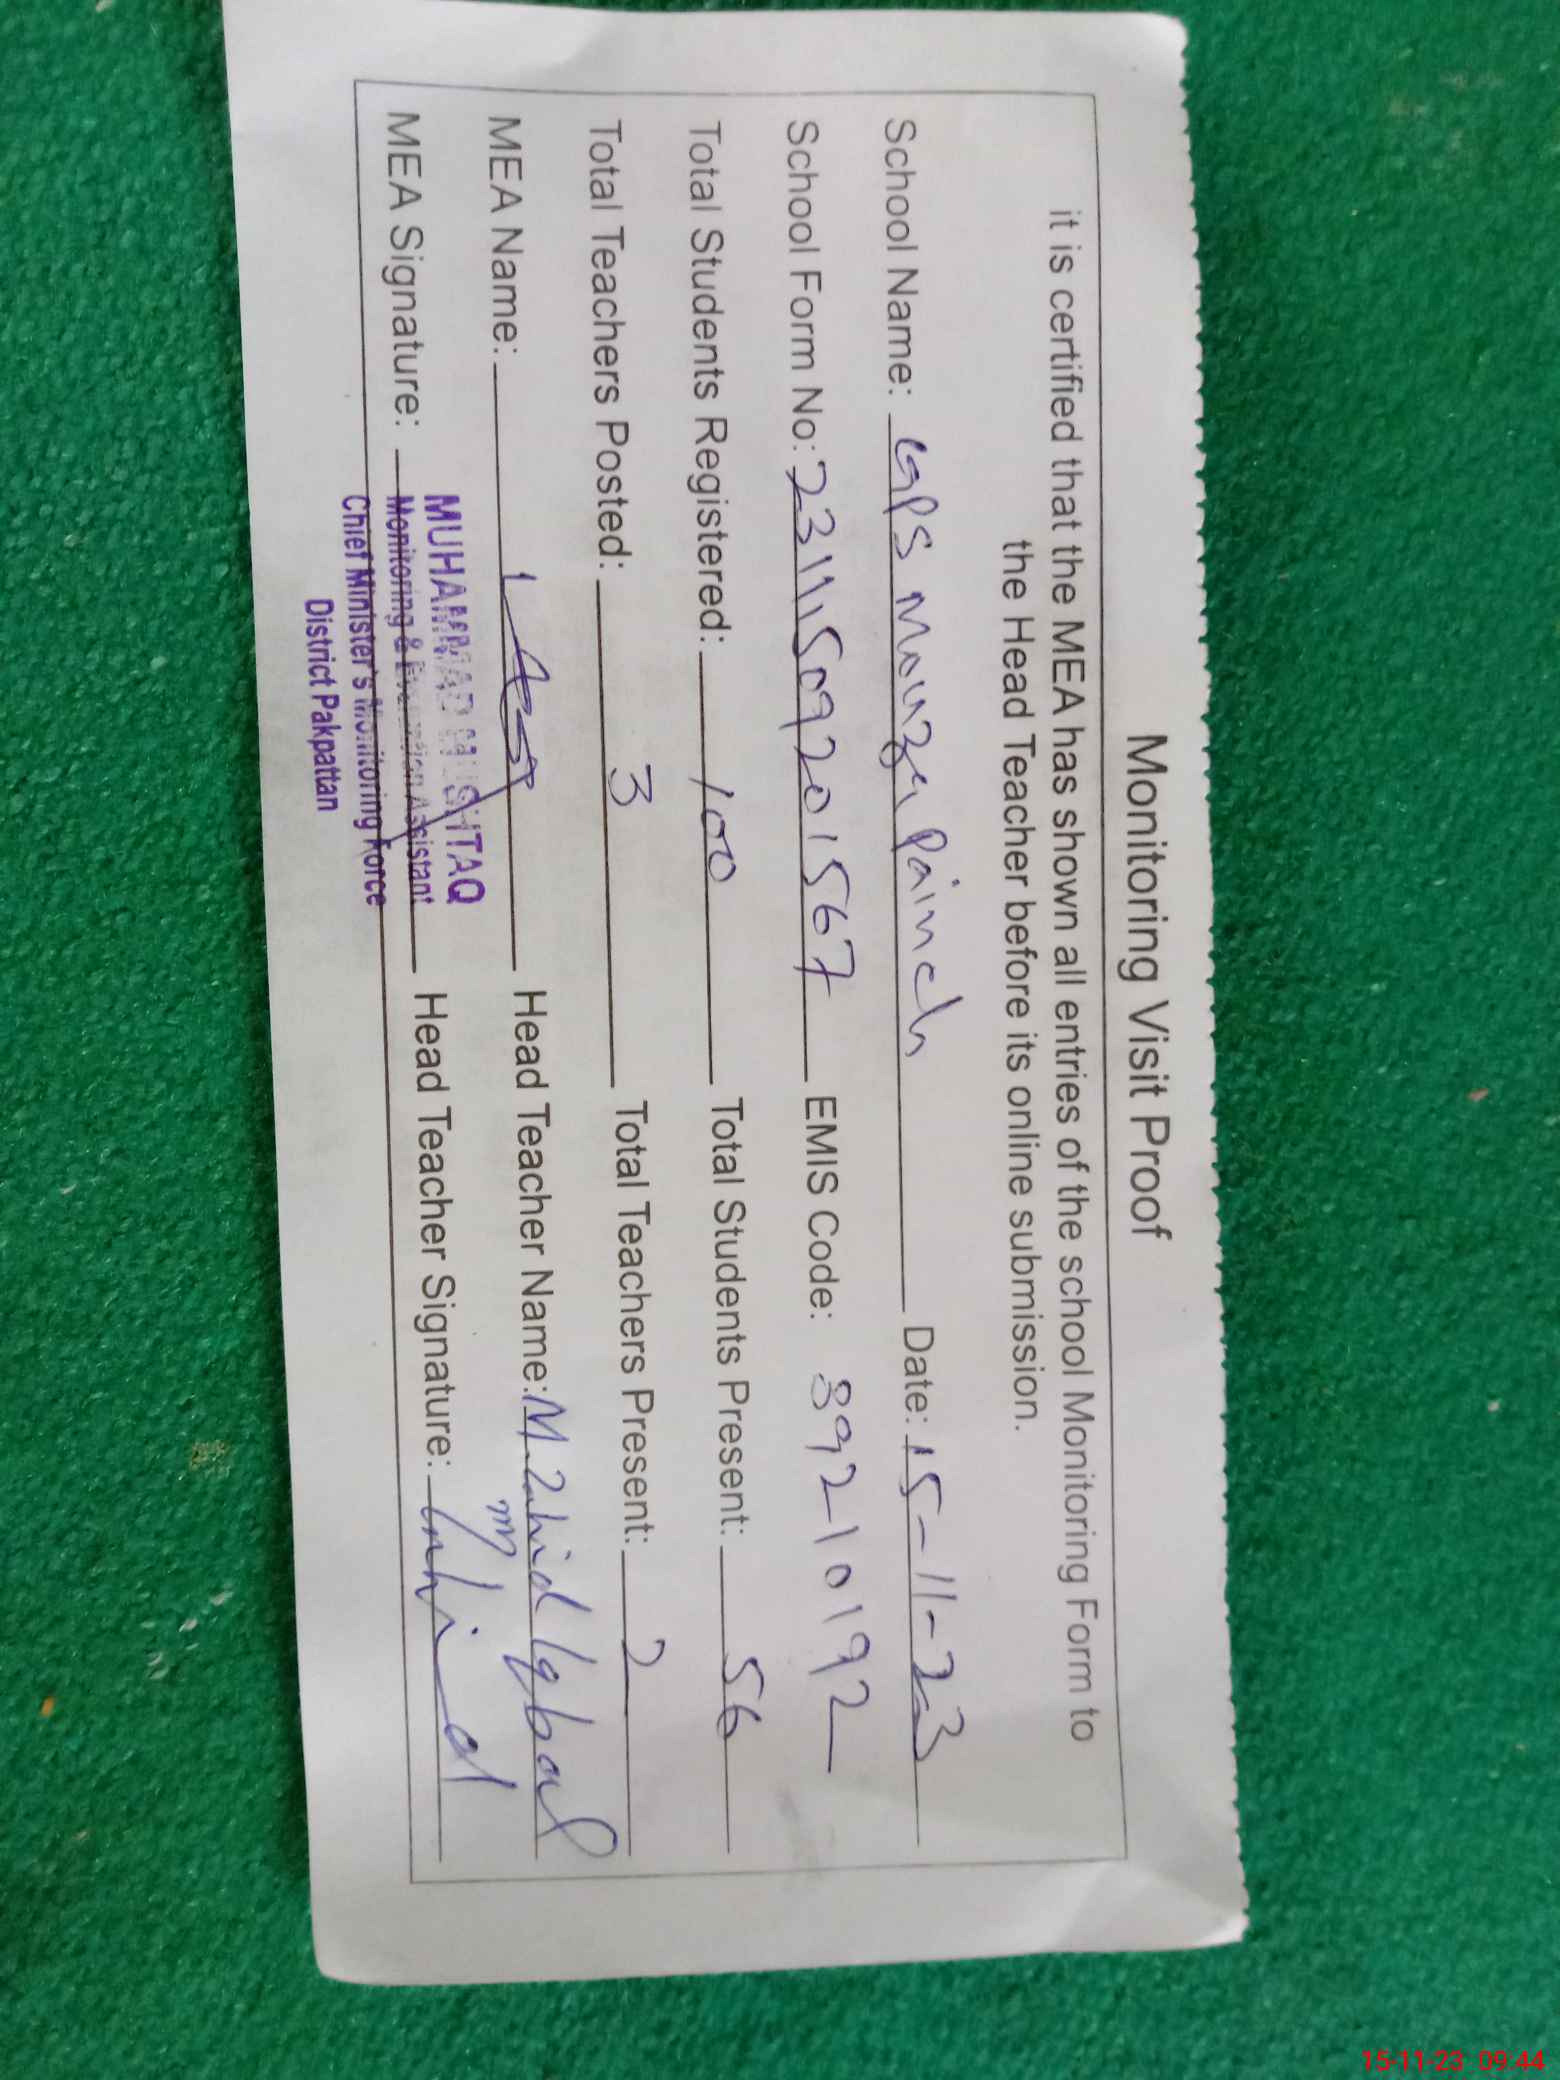 Monitoring Visit Proof
it is certified that the MEA has shown all entries of the school Monitoring Form to
the Head Teacher before its online submission.
School Name: GPS Mouza Painch Date: 15-11-23
School Form No: 23111509201567 EMIS Code: 39210192
Total Students Registered: 100 Total Students Present: 56
Total Teachers Posted: 3 Total Teachers Present: 2
MEA Name: Head Teacher Name: M Zahid Iqbal
MEA Signature: Head Teacher Signature: Zahid
MUHAMMAD MUSHTAQ
Monitoring & Evaluation Assistant
Chief Minister's Monitoring Force
District Pakpattan
15-11-23 09:44